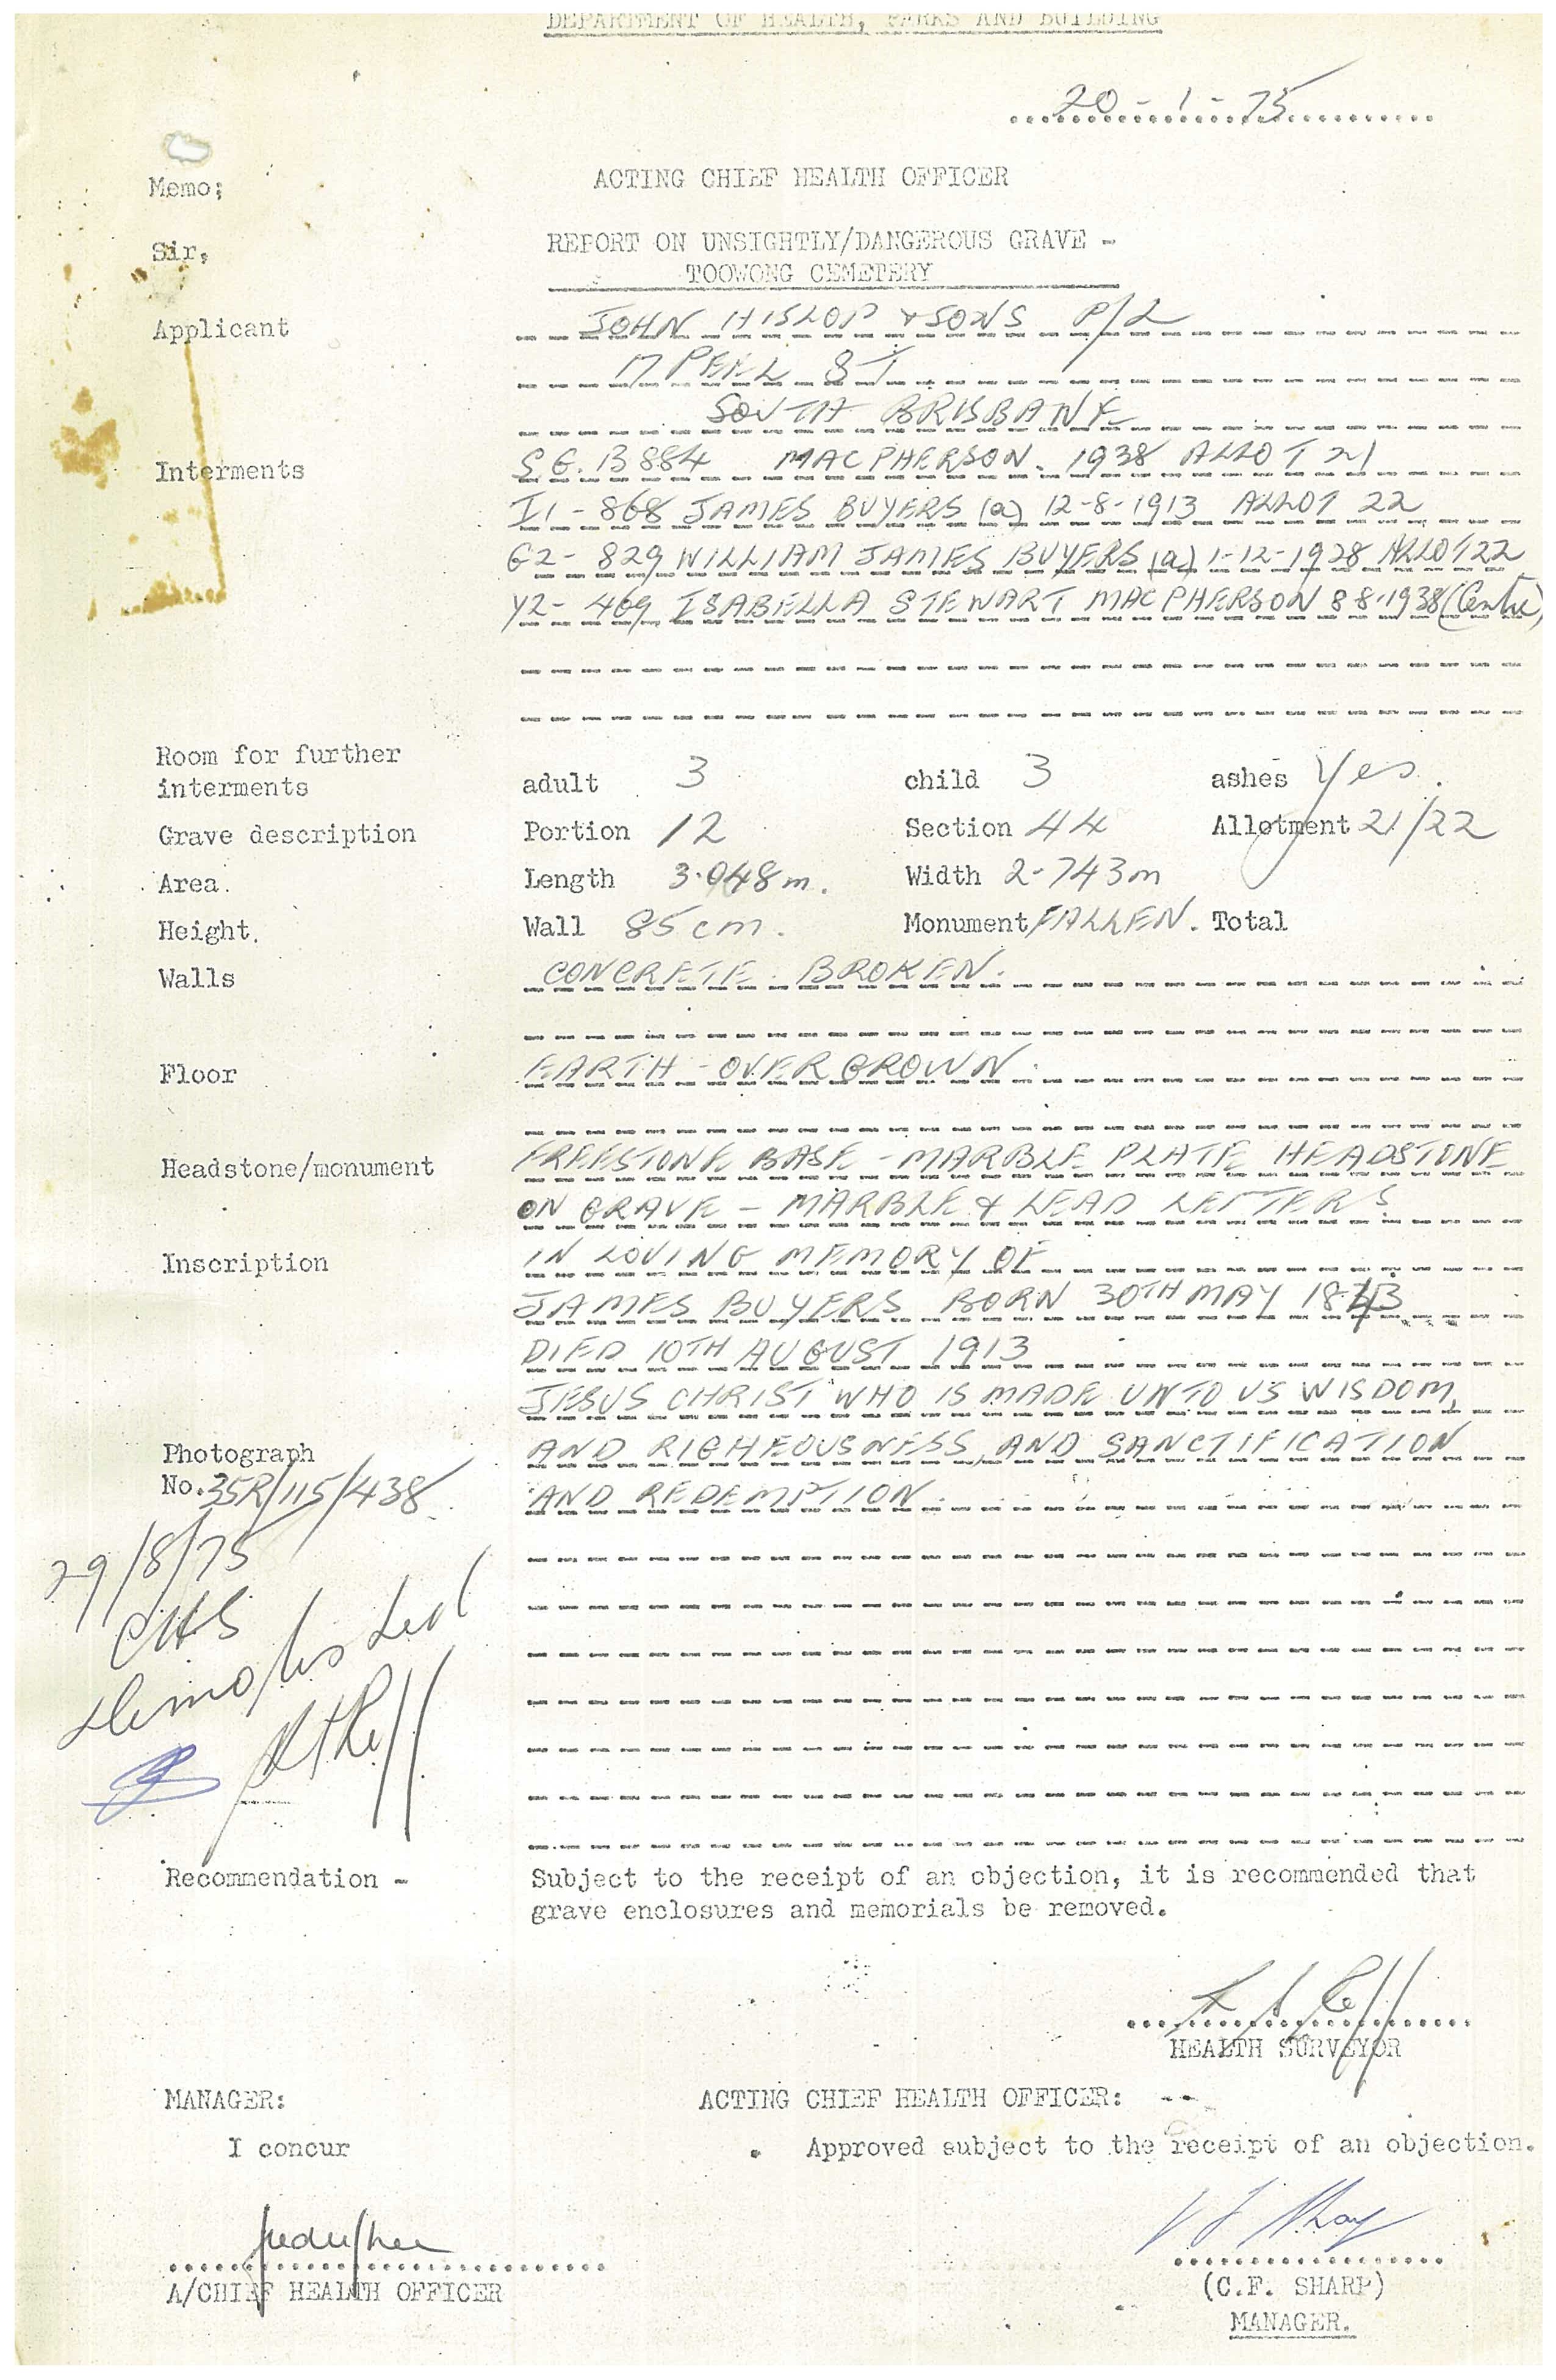 DEPARTMENT OF HEALTH, PARKS AND BUILDING
20-1-75
Memo;
ACTING CHIEF HEALTH OFFICER
Sir,
REPORT ON UNSIGHTLY/DANGEROUS GRAVE -
TOOWONG CEMETERY
Applicant JOHN HISLOP & SONS P/L
17 PEEL ST
SOUTH BRISBANE
Interments S.G. B884 MACPHERSON. 1938 ALLOT 21
I1-868 JAMES BUYERS (a) 12-8-1913 ALLOT 22
G2-829 WILLIAM JAMES BUYERS (a) 1-12-1928 ALLOT 22
Y2-469 ISABELLA STEWART MACPHERSON 8-8-1938 (Centre)
Room for further
interments adult 3 child 3 ashes Yes.
Grave description Portion 12 Section 44 Allotment 21/22
Area. Length 3.048m. Width 2-743m
Height. Wall 85cm. Monument FALLEN. Total
Walls CONCRETE. BROKEN.
Floor EARTH - OVERGROWN.
Headstone/monument FREESTONE BASE - MARBLE PLATE HEADSTONE
ON GRAVE - MARBLE & LEAD LETTERS
Inscription IN LOVING MEMORY OF
JAMES BUYERS BORN 30TH MAY 1843
DIED 10TH AUGUST 1913
JESUS CHRIST WHO IS MADE UNTO US WISDOM,
Photograph AND RIGHEOUSNESS, AND SANCTIFICATION
No. 35R/115/438 AND REDEMPTION.
29/8/75
CHS
Demolished
Recommendation - Subject to the receipt of an objection, it is recommended that
grave enclosures and memorials be removed.
HEALTH SURVEYOR
MANAGER: ACTING CHIEF HEALTH OFFICER: --
I concur . Approved subject to the receipt of an objection.
A/CHIEF HEALTH OFFICER (C.F. SHARP)
MANAGER.